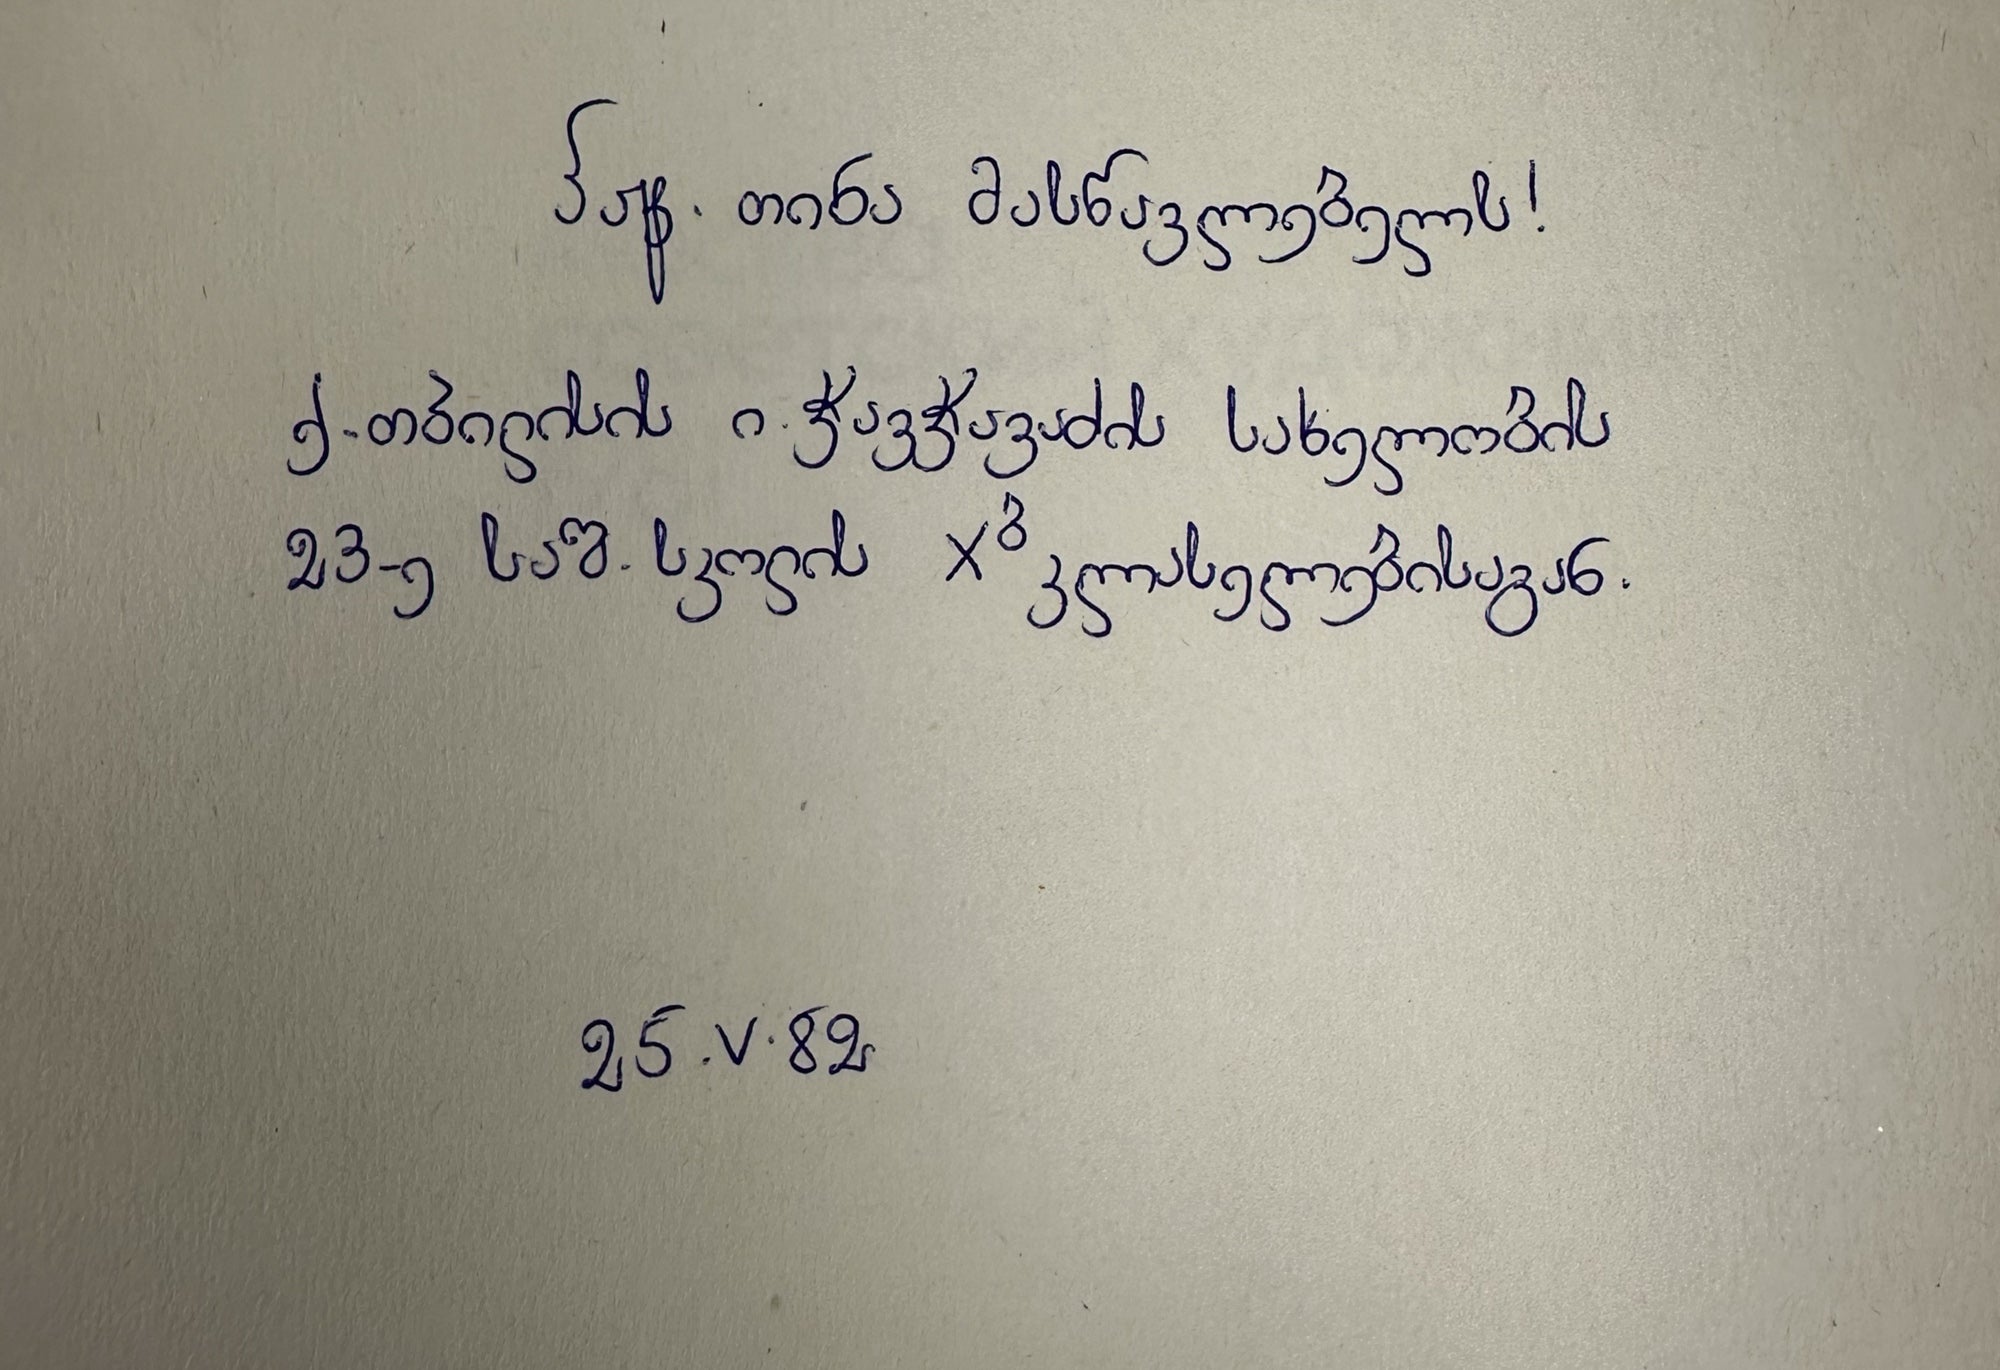 პატ. თინა მასწავლებელს!
ქ. თბილისის ი. ჭავჭავაძის სახელობის
23-ე საშ. სკოლის Xბ კლასელებისაგან.
25.V.82